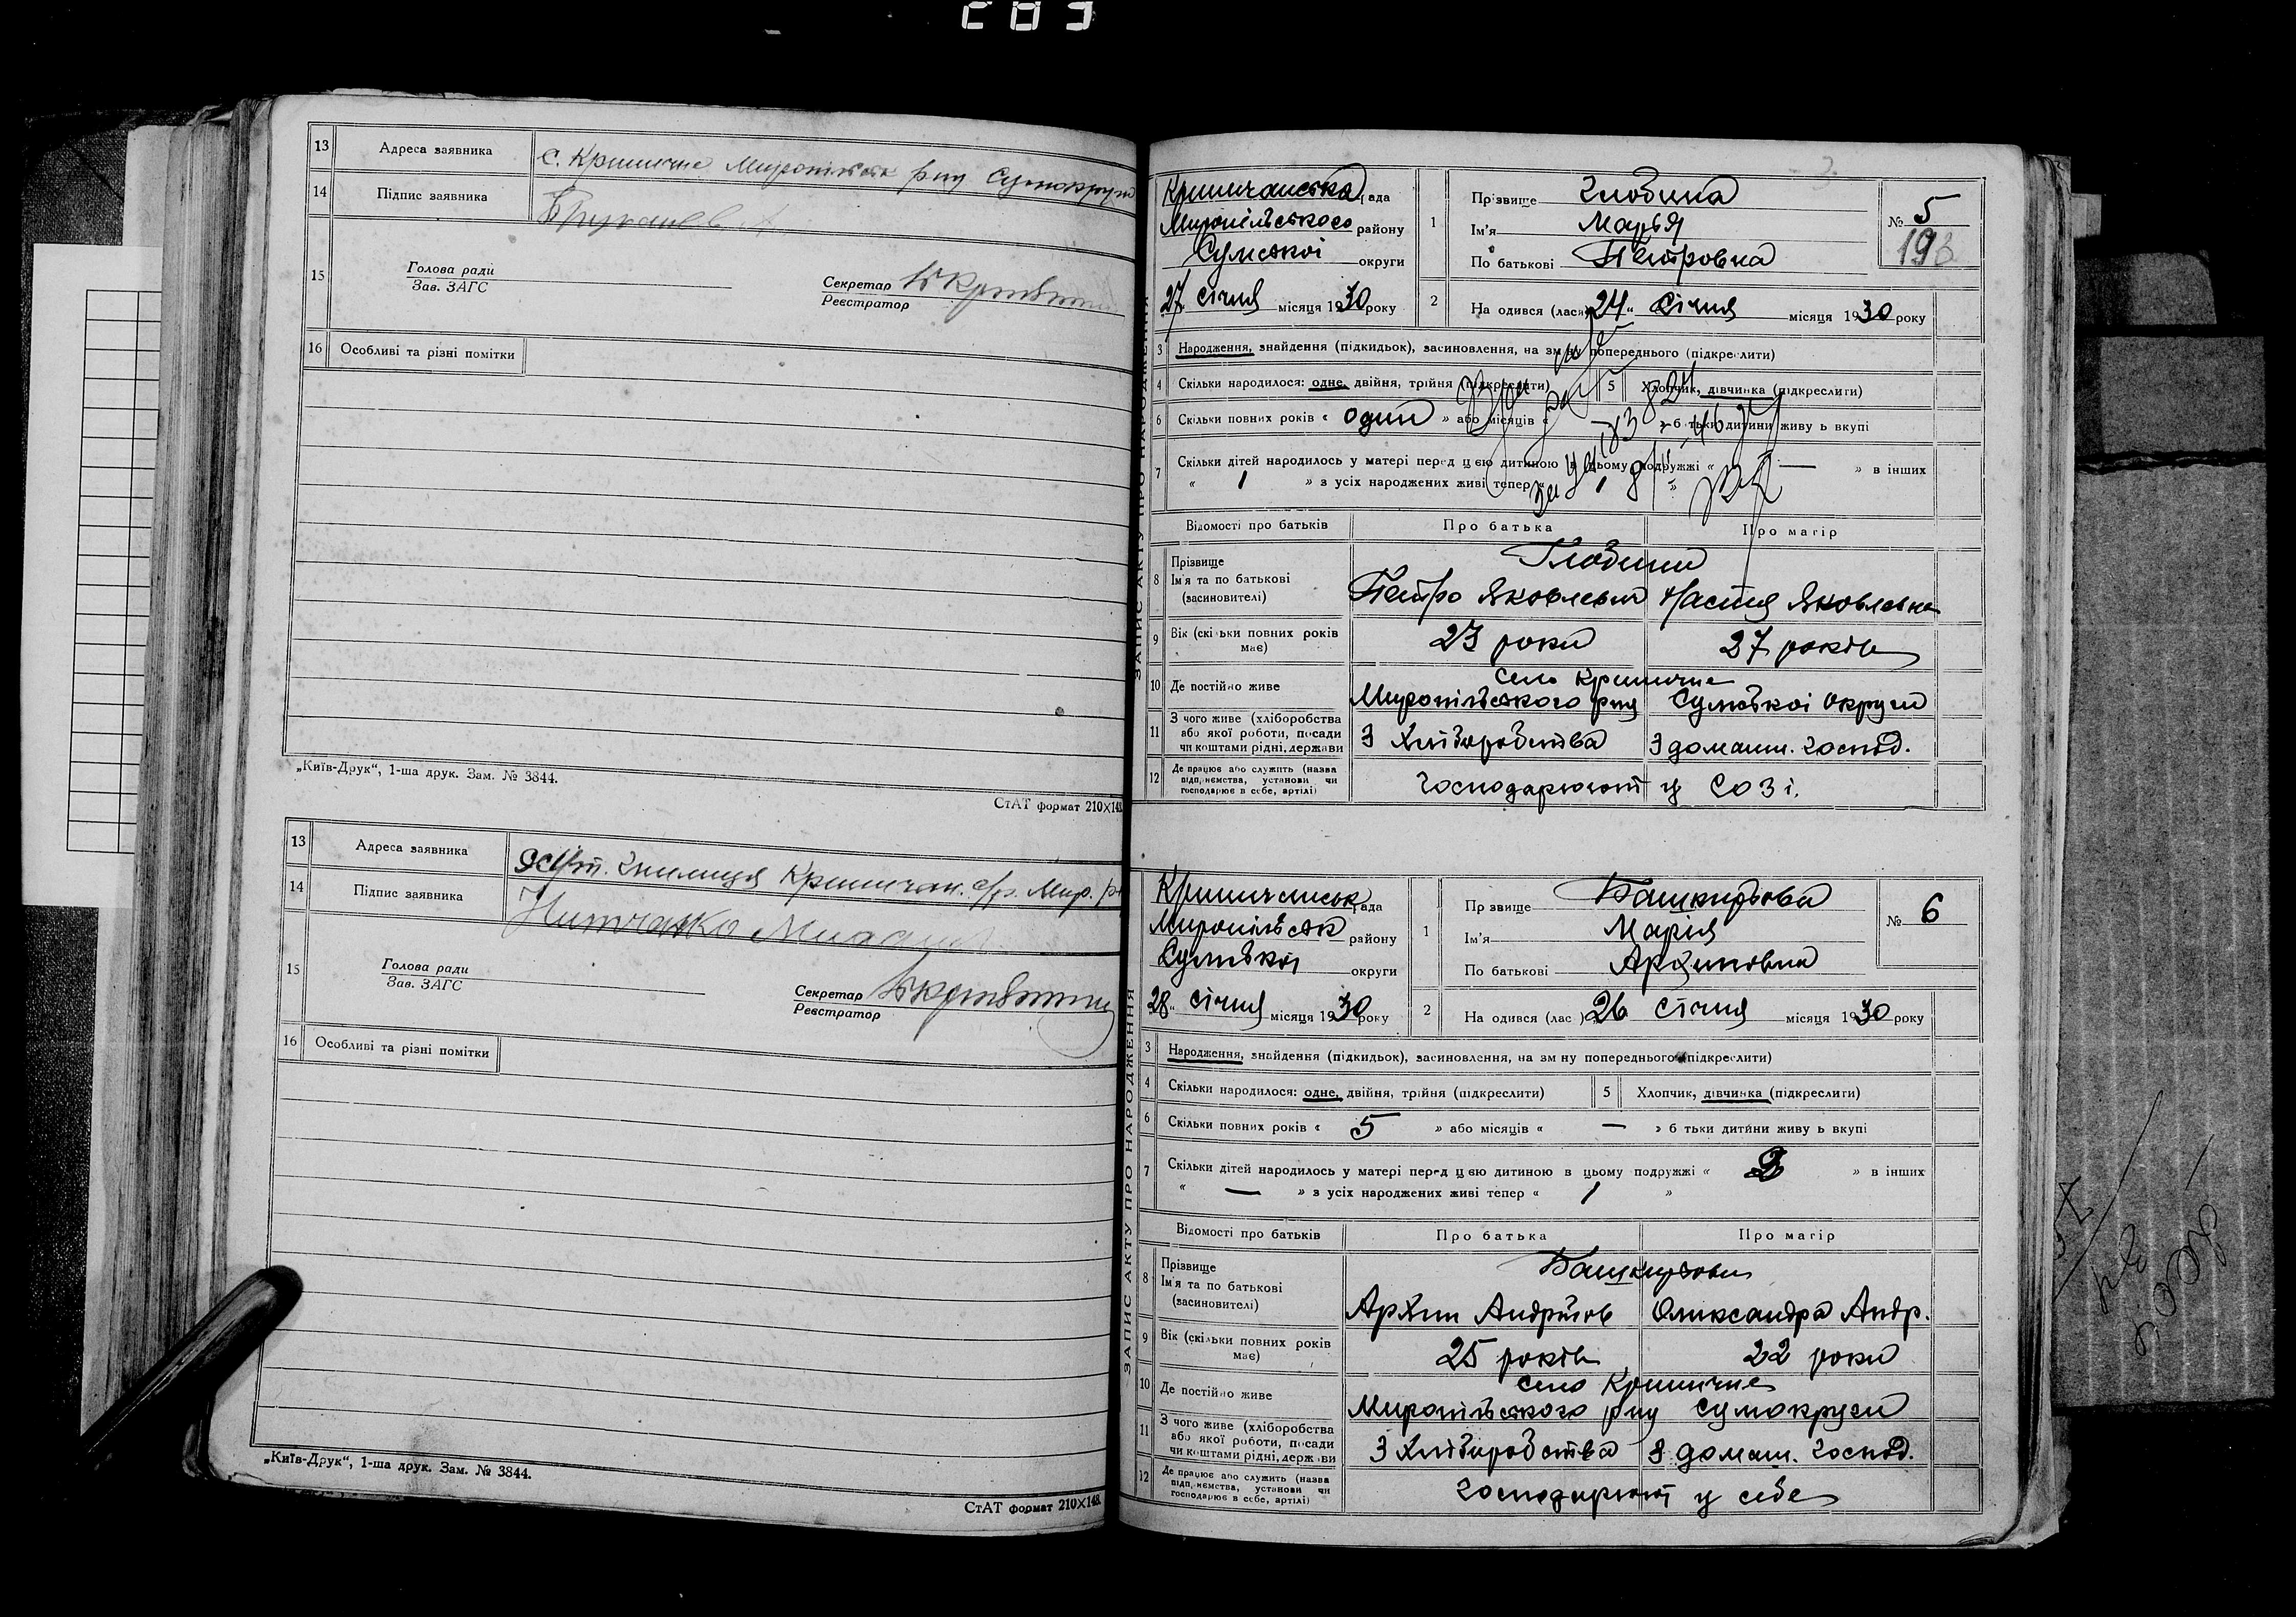 13 Адреса заявника с. Криничне Миропільськ р-ну Сумокруги
14 Підпис заявника
15 Голова ради
Зав. ЗАГС
Секретар
Реєстратор
16 Особливі та різні помітки
„Київ-Друк“, 1-ша друк. Зам. № 3844.
СтАТ формат 210×148.
13 Адреса заявника хут. Гнилиця Криничан. с/р. Мир. р-
14 Підпис заявника
15 Голова ради
Зав. ЗАГС
Секретар
Реєстратор
16 Особливі та різні помітки
„Київ-Друк“, 1-ша друк. Зам. № 3844.
СтАТ формат 210×148.
ЗАПИС АКТУ ПРО НАРОДЖЕННЯ
Криничанська рада
Миропільського району
Сумської округи
27 січня місяця 1930 року
1 Прізвище Глобина
Ім'я Марья
По батькові Петровна
№ 5
193
2 На одився (лася) 24 " Січня місяця 1930 року
3 Народження, знайдення (підкидьок), засиновлення, на зм ну попереднього (підкреслити)
4 Скільки народилося: одне, двійня, трійня (підкреслити) 5 Хлопчик, дівчинка (підкреслити)
6 Скільки повних років « один » або місяців « » б тьки дитини живу ь вкупі
7 Скільки дітей народилось у матері перед цією дитиною в цьому подружжі « — » в інших
« 1 » з усіх народжених живі тепер « 1 »
Відомості про батьків Про батька Про матір
8 Прізвище Глобини
Ім'я та по батькові Петро Яковлевич Настя Яковлевна
(засиновителі)
9 Вік (скільки повних років має) 23 роки 27 років
10 Де постійно живе село Криничне
Миропільського р-ну Сумської округи
11 З чого живе (хліборобства
або якої роботи, посади З Хліборобства З домашн. господ.
чи коштами рідні, держави
12 Де працює або служить (назва
підприємства, установи чи господарюют у СОЗі.
господарює в себе, артілі)
ЗАПИС АКТУ ПРО НАРОДЖЕННЯ
Криничанськ рада
Миропільськ району
Сумської округи
28 " січня місяця 1930 року
1 Пр звище Башкирьова
Ім'я Марія
По батькові Архиповна
№ 6
2 На одився (лас ) 26 Січня місяця 1930 року
3 Народження, знайдення (підкидьок), засиновлення, на зм ну попереднього (підкреслити)
4 Скільки народилося: одне, двійня, трійня (підкреслити) 5 Хлопчик, дівчинка (підкреслити)
6 Скільки повних років « 5 » або місяців « — » б тьки дитини живу ь вкупі
7 Скільки дітей народилось у матері перед цією дитиною в цьому подружжі « 2 » в інших
« — » з усіх народжених живі тепер « 1 »
Відомості про батьків Про батька Про матір
8 Прізвище Башкирьови
Ім'я та по батькові Архип Андрійов Олександра Андр.
(засиновителі)
9 Вік (скільки повних років має) 25 років 22 роки
10 Де постійно живе село Криничне
Миропільського р-ну Сумокруги
11 З чого живе (хліборобства
або якої роботи, посади З Хліборобства З домаш. господ.
чи коштами рідні, держави
12 Де працює або служить (назва
підприємства, установи чи господарюют у себе
господарює в себе, артілі)